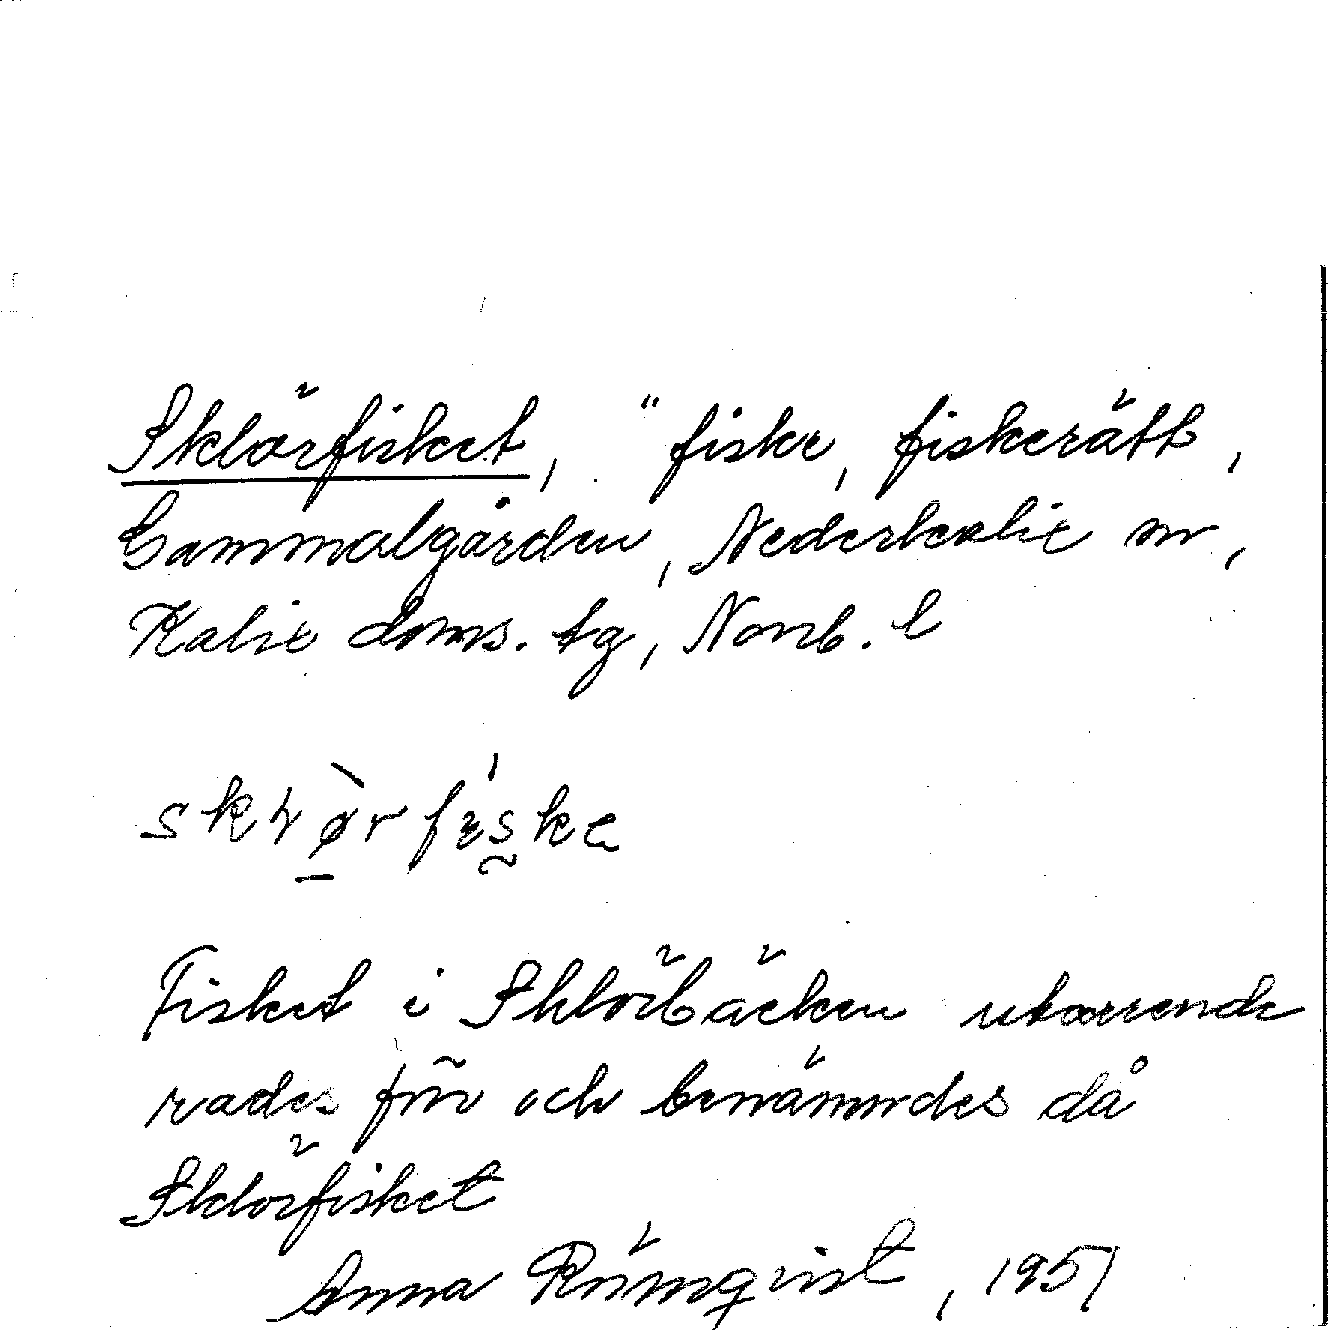 Sklörfisket, " fiske, fiskerätt,
Gammalgården, Nederkalix sn,
Kalix doms. tg, Norrb. l
Fisket i Sklörbäcken utarrende
rades förr och benämndes då
Sklörfisket
Anna Rönnqvist, 1951